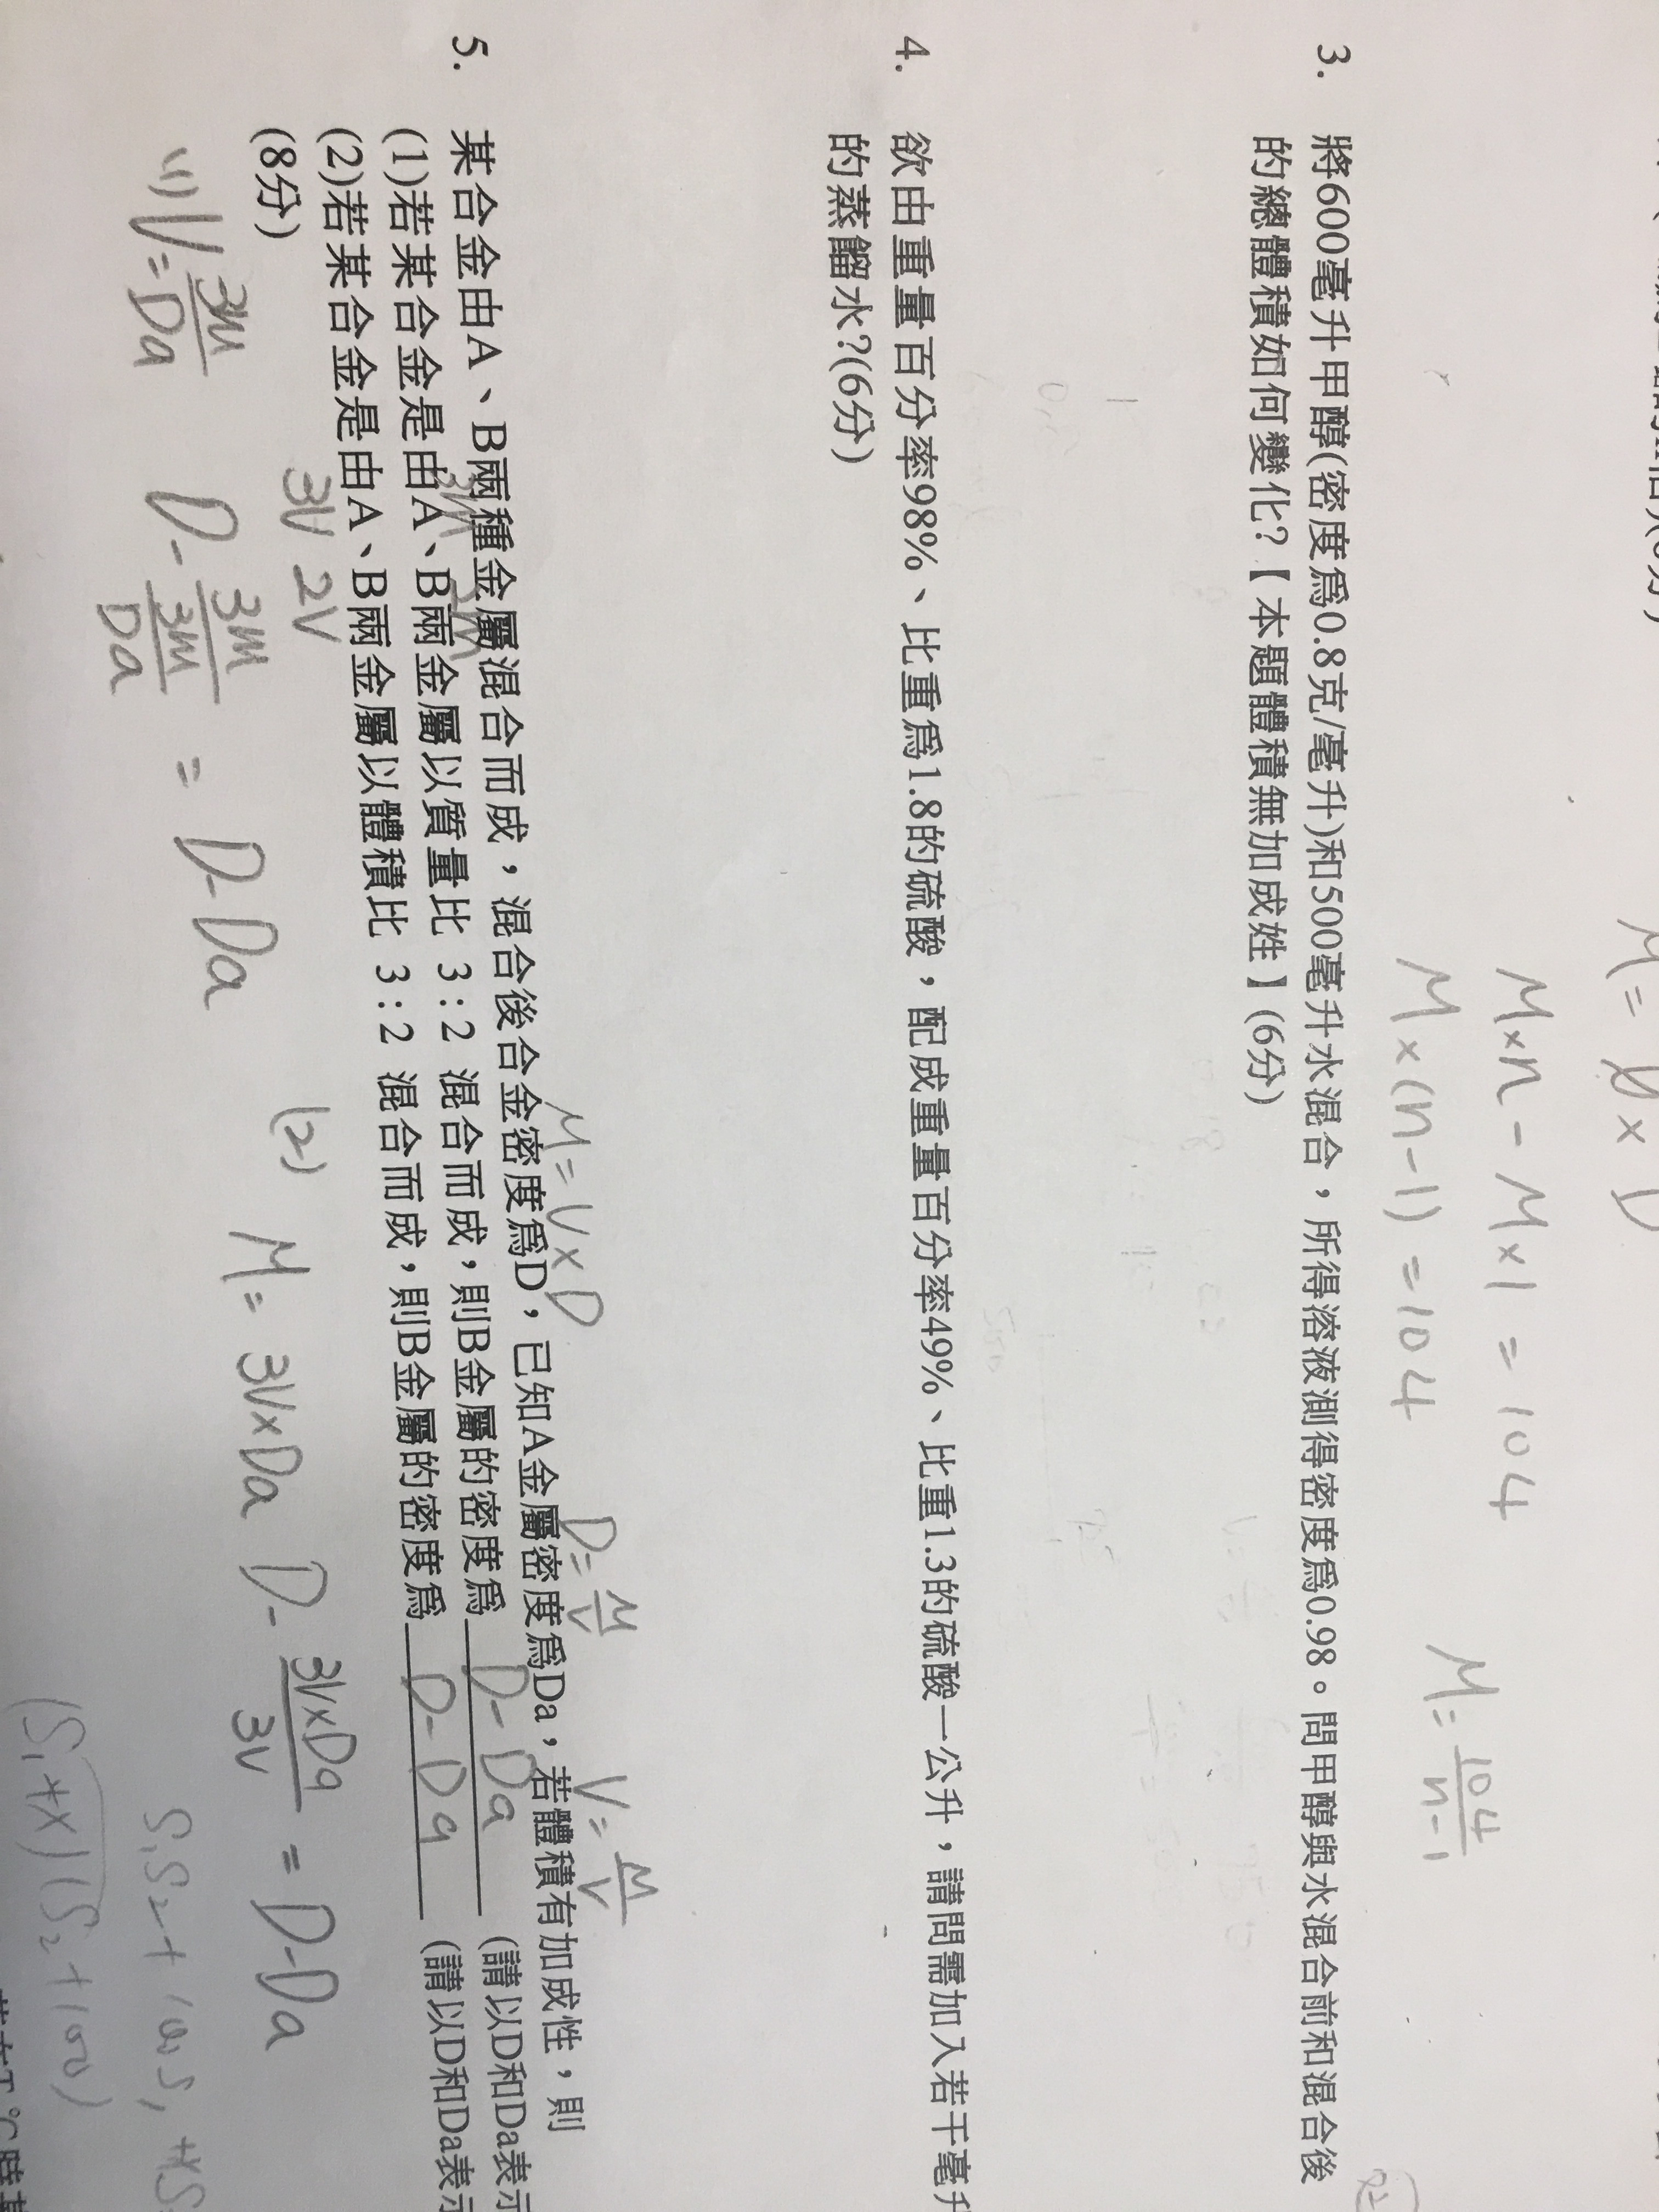 M = V × D
M×n - M×1 = 104
M×(n-1) = 104
M = 104/n-1
3. 將600毫升甲醇(密度為0.8克/毫升)和500毫升水混合，所得溶液測得密度為0.98。問甲醇與水混合前和混合後
的總體積如何變化?【本題體積無加成姓】(6分)
4. 欲由重量百分率98%、比重為1.8的硫酸，配成重量百分率49%、比重1.3的硫酸一公升，請問需加入若干毫升
的蒸餾水?(6分)
M = V × D
D = M/V
V = M/V
5. 某合金由A、B兩種金屬混合而成，混合後合金密度為D，已知A金屬密度為Da，若體積有加成性，則
3M 2M
(1)若某合金是由A、B兩金屬以質量比 3:2 混合而成，則B金屬的密度為 D-Da (請以D和Da表示
(2)若某合金是由A、B兩金屬以體積比 3:2 混合而成，則B金屬的密度為 D-Da (請以D和Da表示
3V 2V
(8分)
(1) V = 3M/Da
D - 3M/(3M/Da) = D-Da
(2) M = 3V×Da
D - 3V×Da/3V = D-Da
S₁S₂ + 100S₁ + XS
(S₁+X)(S₂+100)